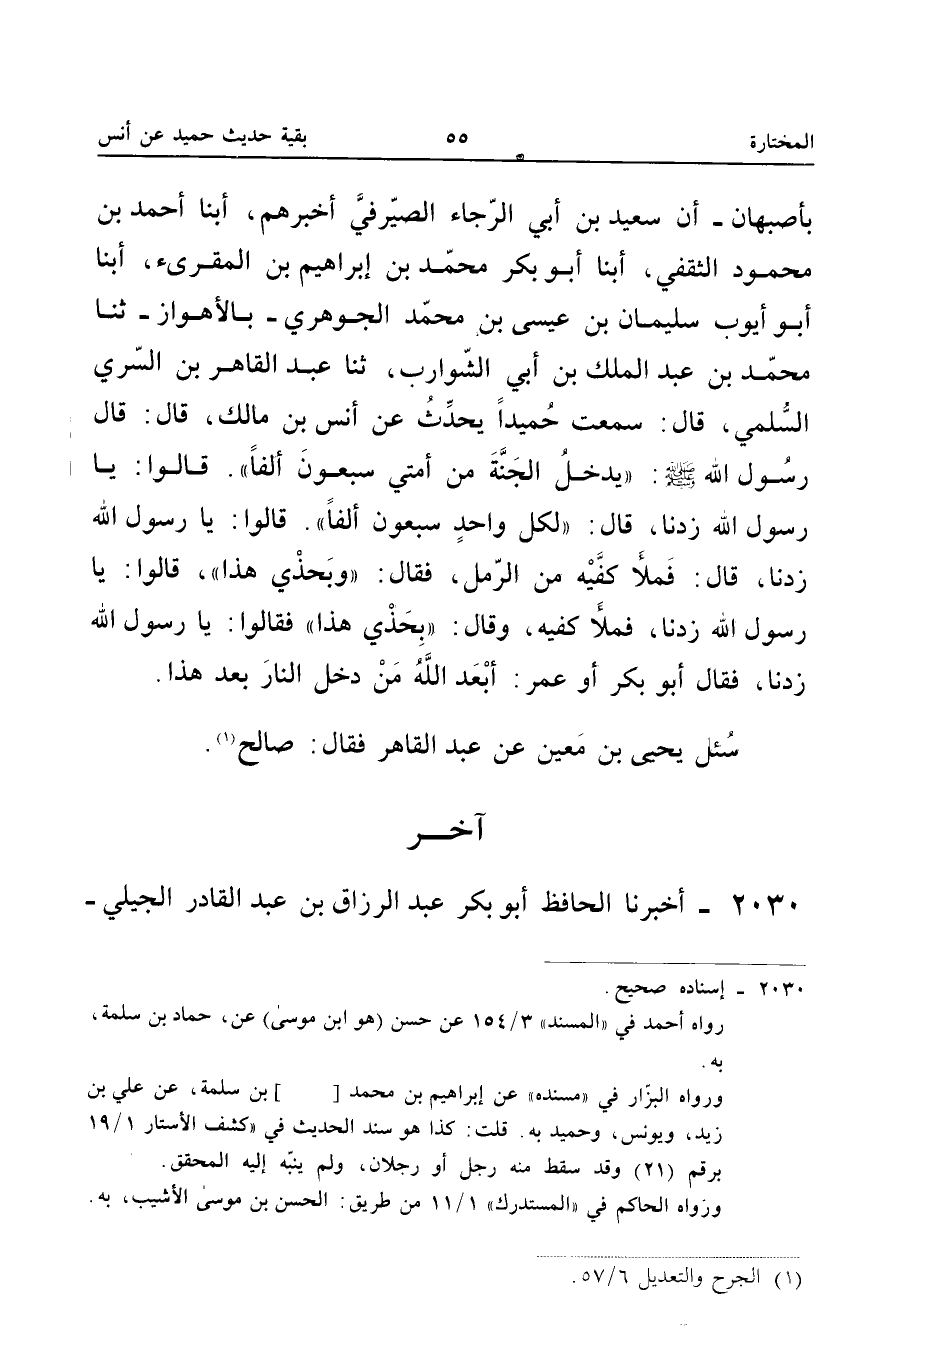 المختارة ٥٥ بقية حديث حميد عن أنس
بأصبهان ـ أن سعيد بن أبي الرّجاء الصيّرفيَّ أخبرهم، أبنا أحمد بن
محمود الثقفي، أبنا أبو بكر محمّد بن إبراهيم بن المقرىء، أبنا
أبو أيوب سليمان بن عيسى بن محمّد الجوهري ـ بالأهواز ـ ثنا
محمّد بن عبد الملك بن أبي الشّوارب، ثنا عبد القاهر بن السّري
السُّلمي، قال: سمعت حُميداً يحدِّثُ عن أنس بن مالك، قال: قال
رسُول الله ﷺ: «يدخلُ الجَنَّةَ من أمتي سبعونَ ألفاً». قالوا: يا
رسول الله زدنا، قال: «لكل واحدٍ سبعون ألفاً». قالوا: يا رسول الله
زدنا، قال: فَملأَ كفَّيْه من الرّمل، فقال: «وبَحذْي هذا»، قالوا: يا
رسول الله زدنا، فملأَ كفيه، وقال: «بِحَذْي هذا» فقالوا: يا رسول الله
زدنا، فقال أبو بكر أو عمر: أبْعَد اللَّهُ مَنْ دخل النارَ بعد هذا.
سُئل يحيى بن مَعين عن عبد القاهر فقال: صالح(١).
آخر
٢٠٣٠ ـ أخبرنا الحافظ أبو بكر عبد الرزاق بن عبد القادر الجيلي ـ
٢٠٣٠ ـ إسناده صحيح.
رواه أحمد في «المسند» ١٥٤/٣ عن حسن (هو ابن موسىٰ) عن، حماد بن سلمة،
به.
ورواه البزّار في «مسنده» عن إبراهيم بن محمد [ ] بن سلمة، عن علي بن
زيد، ويونس، وحميد به. قلت: كذا هو سند الحديث في «كشف الأستار ١٩/١
برقم (٢١) وقد سقط منه رجل أو رجلان، ولم ينبّه إليه المحقق.
ورواه الحاكم في «المستدرك» ١١/١ من طريق: الحسن بن موسىٰ الأشيب، به.
(١) الجرح والتعديل ٥٧/٦.